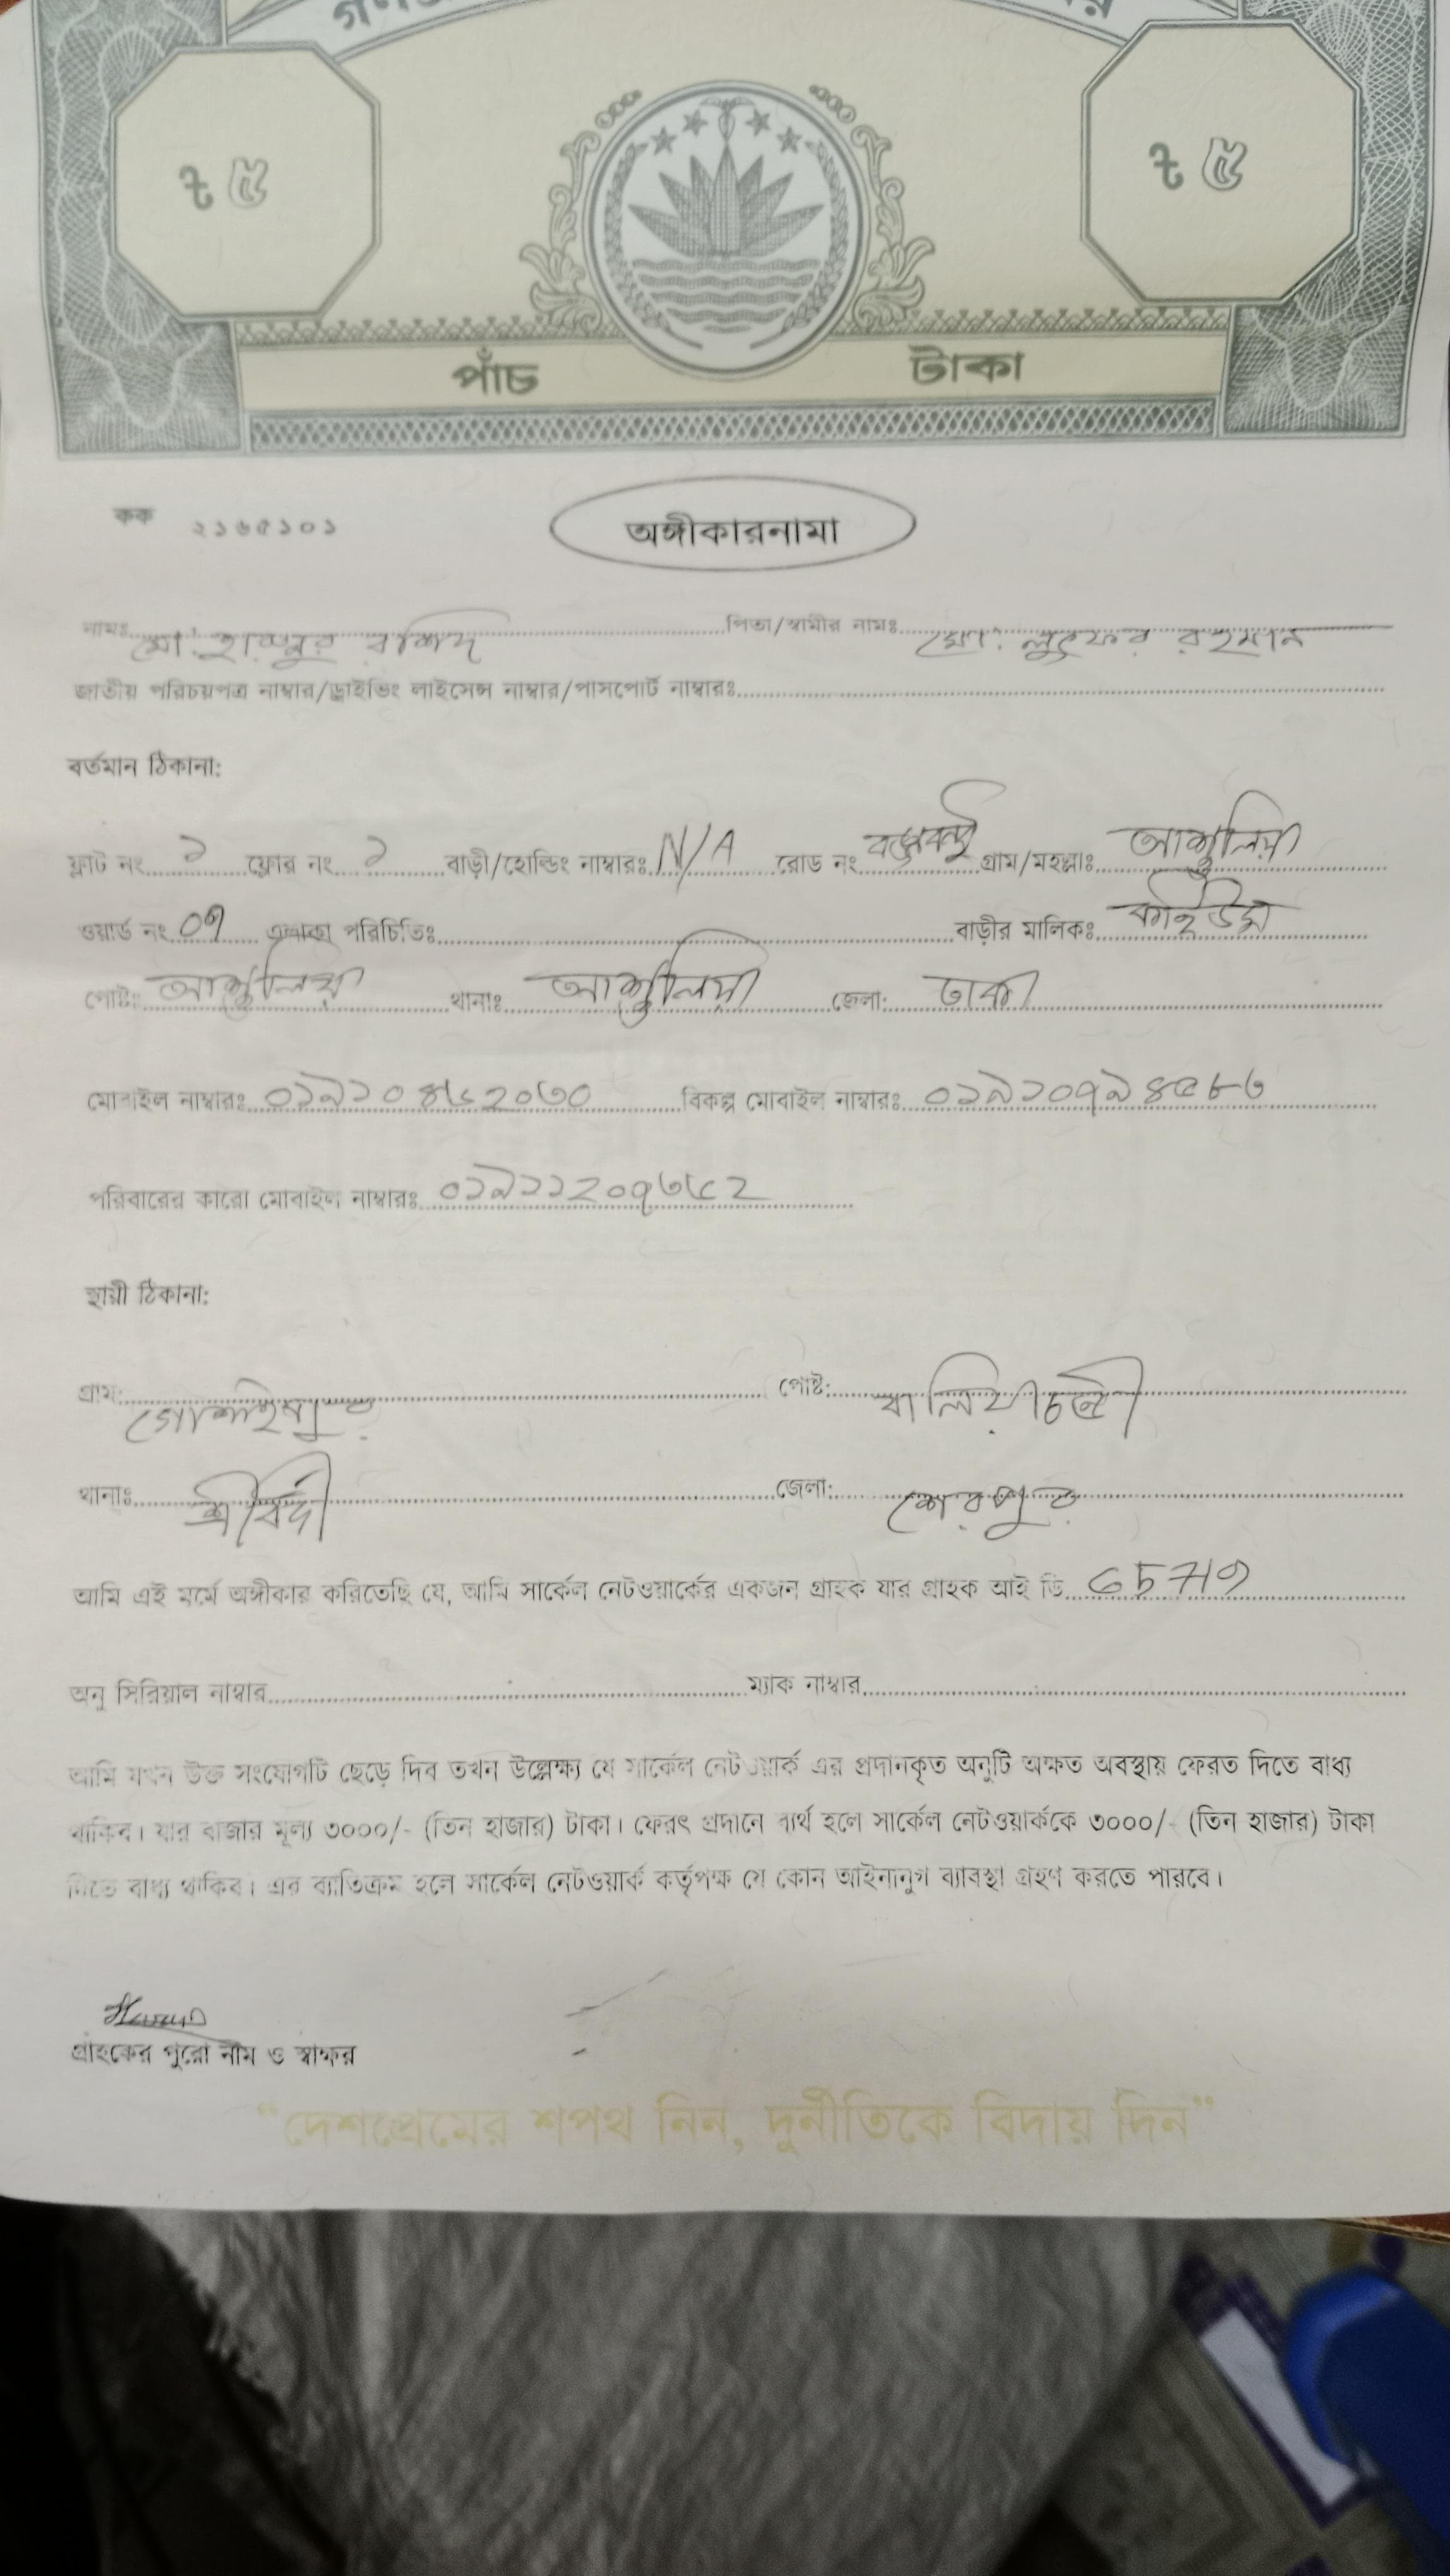 ৳ ৫ ৳ ৫
পাঁচ টাকা
কক ২১৬৫১০১
অঙ্গীকারনামা
নামঃ মো: হারুনুর রশিদ পিতা/স্বামীর নামঃ মো: লুৎফর রহমান
জাতীয় পরিচয়পত্র নাম্বার/ড্রাইভিং লাইসেন্স নাম্বার/পাসপোর্ট নাম্বারঃ
বর্তমান ঠিকানা:
ফ্লাট নং ১ ফ্লোর নং ১ বাড়ী/হোল্ডিং নাম্বারঃ N/A রোড নং গ্রাম/মহল্লাঃ আশুলিয়া
ওয়ার্ড নং ০৭ এলাকা পরিচিতিঃ বাড়ীর মালিকঃ
পোষ্ট: আশুলিয়া থানাঃ আশুলিয়া জেলা: ঢাকা
মোবাইল নাম্বারঃ ০১৯১০৪৬২০৩০ বিকল্প মোবাইল নাম্বারঃ ০১৯১০৭৯৪৫৮৩
পরিবারের কারো মোবাইল নাম্বারঃ
স্থায়ী ঠিকানা:
গ্রাম: গোশাইপুর পোষ্ট: বালিয়াচন্ডী
থানাঃ শ্রীবর্দী জেলা: শেরপুর
আমি এই মর্মে অঙ্গীকার করিতেছি যে, আমি সার্কেল নেটওয়ার্কের একজন গ্রাহক যার গ্রাহক আই ডি
অনু সিরিয়াল নাম্বার ম্যাক নাম্বার
আমি যখন উক্ত সংযোগটি ছেড়ে দিব তখন উল্লেক্ষ্য যে সার্কেল নেটওয়ার্ক এর প্রদানকৃত অনুটি অক্ষত অবস্থায় ফেরত দিতে বাধ্য
থাকিব। যার বাজার মূল্য ৩০০০/- (তিন হাজার) টাকা। ফেরৎ প্রদানে ব্যর্থ হলে সার্কেল নেটওয়ার্ককে ৩০০০/- (তিন হাজার) টাকা
দিতে বাধ্য থাকিব। এর ব্যাতিক্রম হলে সার্কেল নেটওয়ার্ক কর্তৃপক্ষ যে কোন আইনানুগ ব্যাবস্থা গ্রহণ করতে পারবে।
গ্রাহকের পুরো নাম ও স্বাক্ষর
“দেশপ্রেমের শপথ নিন, দুর্নীতিকে বিদায় দিন”